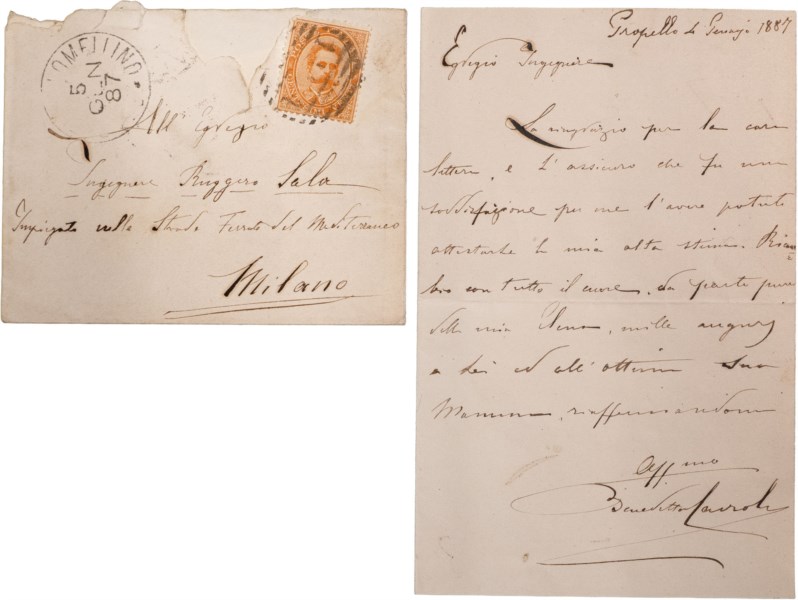 LOMELLINO
5
GEN
87
All' Egregio
Ingegnere Ruggero Sala
Impiegato nelle Strade Ferrate del Mediterraneo
Milano
Gropello di 1887
Egregio Ingegnere
La ringrazio per la cara
lettera, e L'assicuro che fu una
soddisfazione per me l'avere potuto
attestarle la mia alta stima.
con tutto il cuore, da parte pure
della mia Elena, mille augurj
a Lei ed all'ottima Sua
Mamma, riaffermandomi
Affmo
Benedetto Cairoli